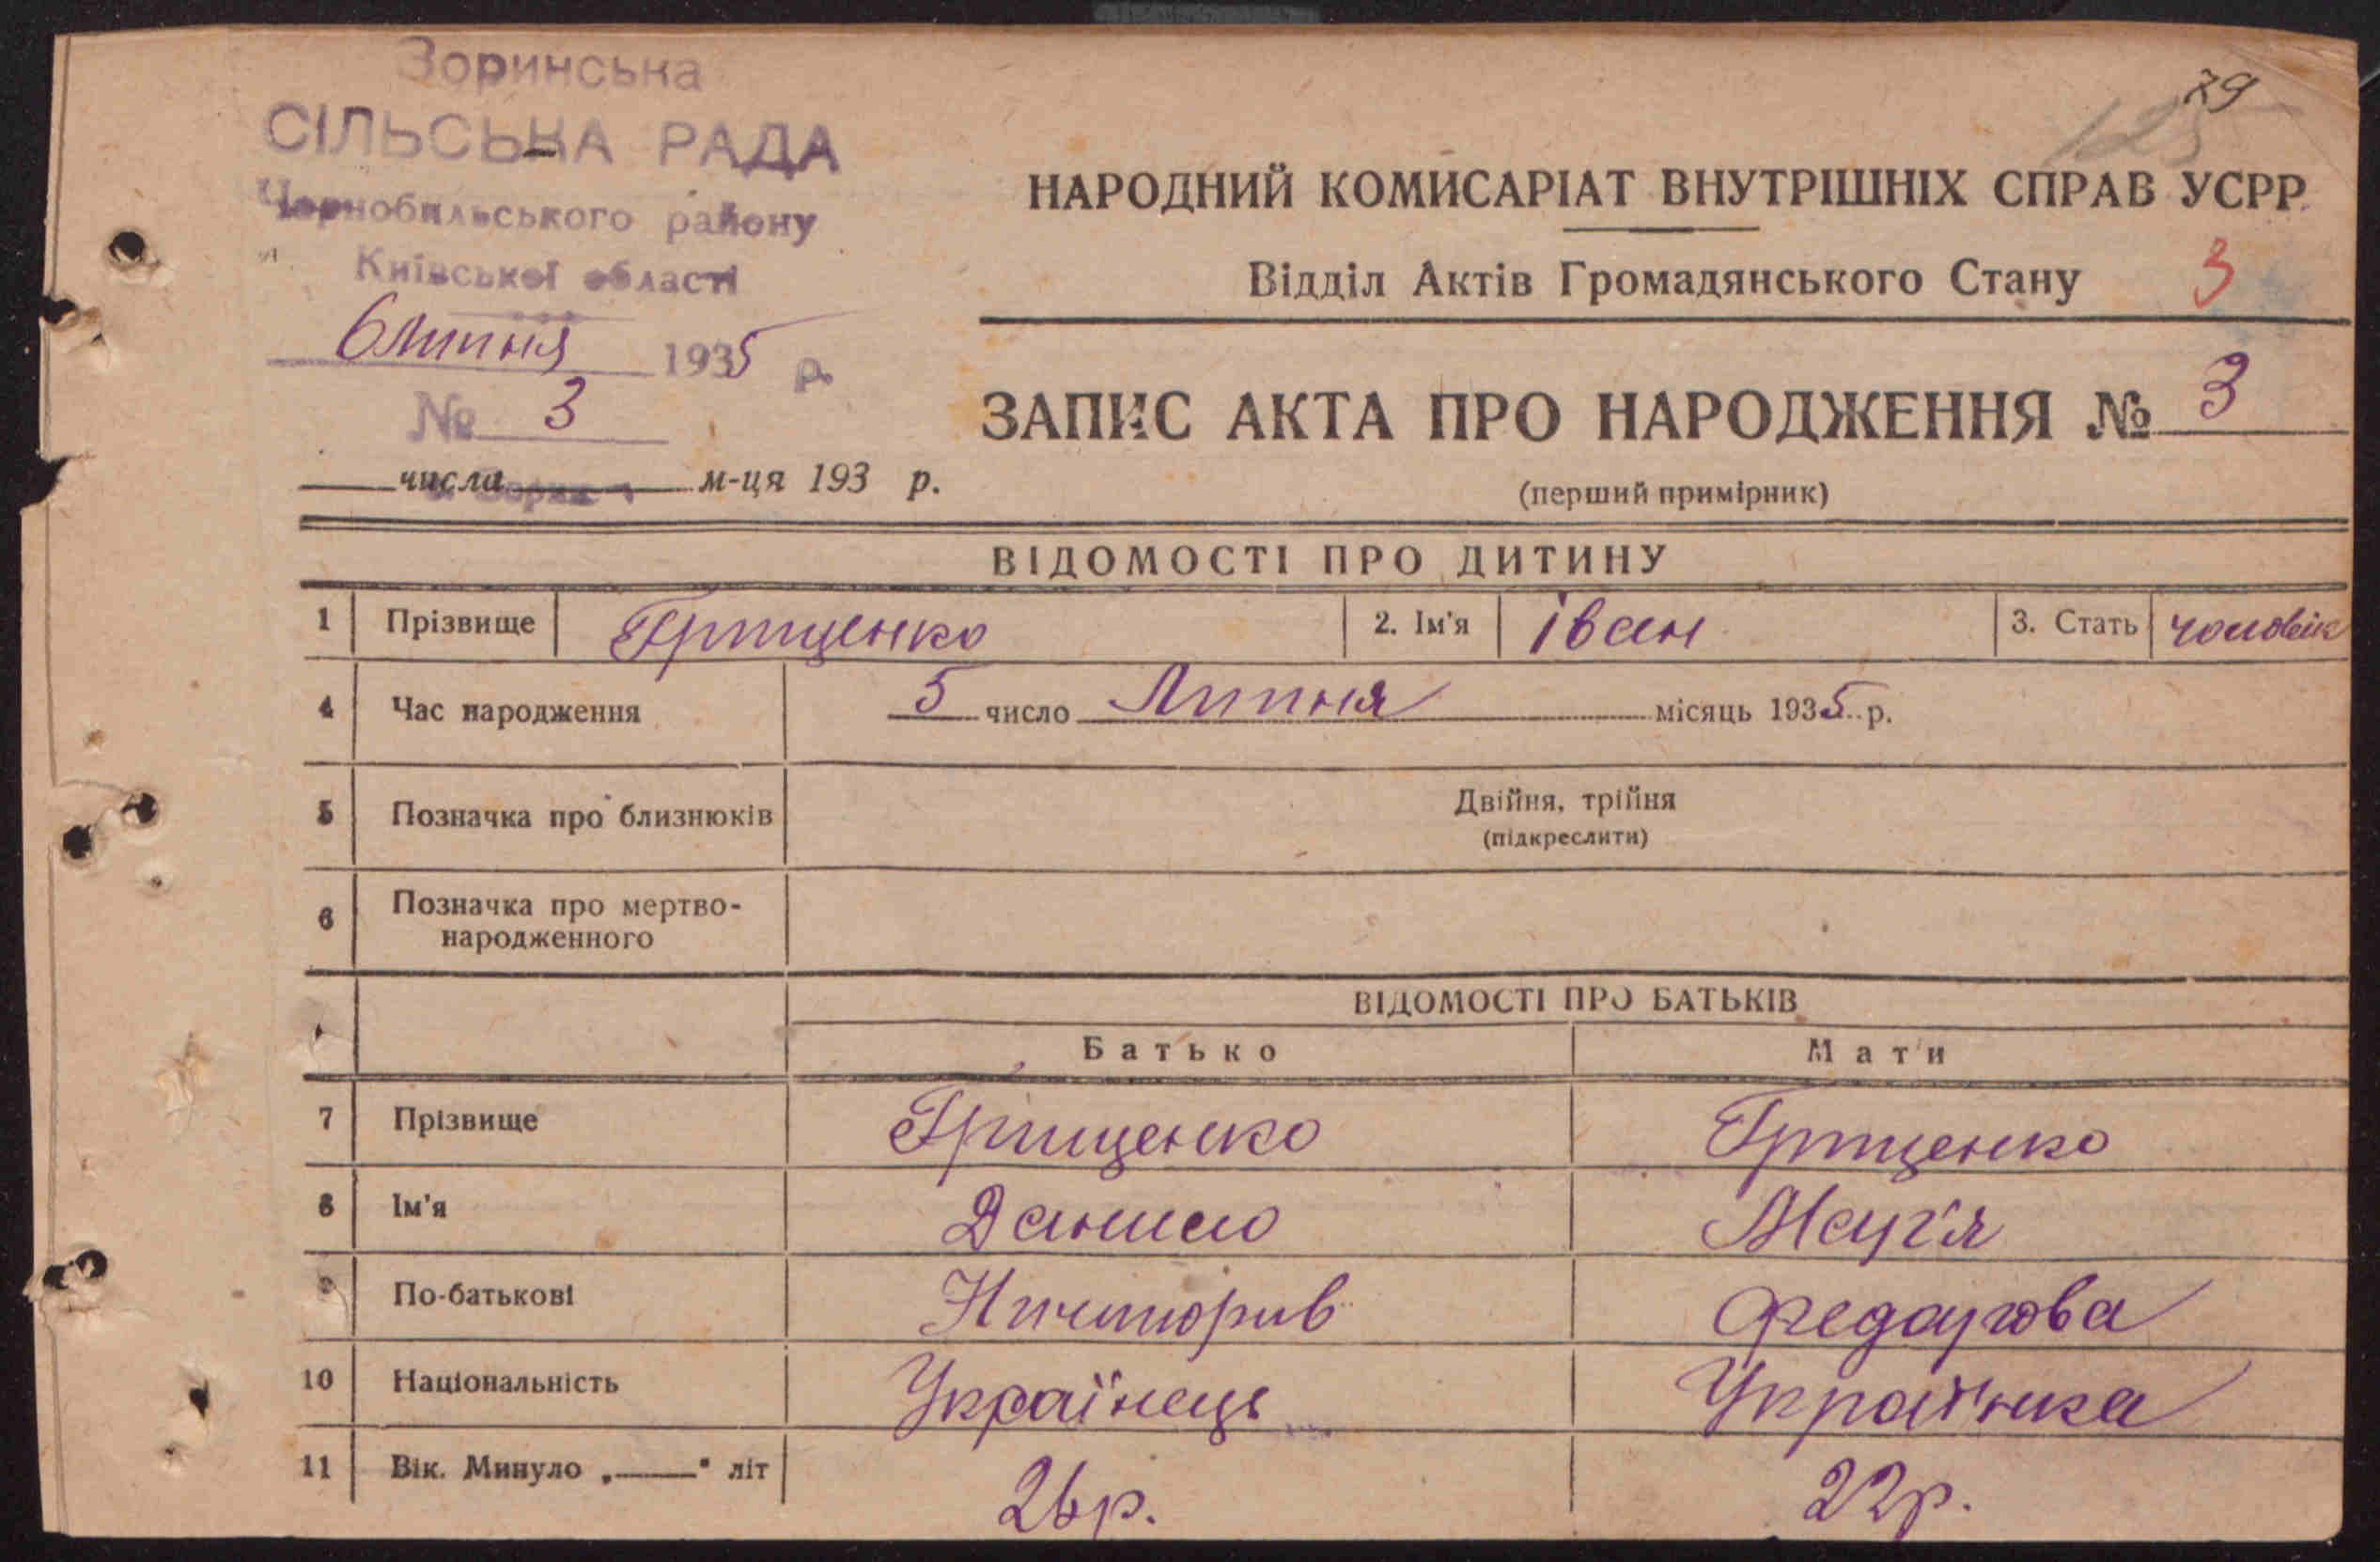 Зоринська
СІЛЬСЬКА РАДА
Чорнобильського району
Київської області
6 Липня 1935 р.
№ 3
числа м-ця 193 р.
79
125
НАРОДНИЙ КОМИСАРІАТ ВНУТРІШНІХ СПРАВ УСРР
Відділ Актів Громадянського Стану 3
ЗАПИС АКТА ПРО НАРОДЖЕННЯ № 3
(перший примірник)
ВІДОМОСТІ ПРО ДИТИНУ
1 Прізвище Грищенко 2. Ім'я Іван 3. Стать чоловік
4 Час народження 5 число Липня місяць 1935 р.
5 Позначка про близнюків Двійня, трійня
(підкреслити)
6 Позначка про мертво-
народженного
ВІДОМОСТІ ПРО БАТЬКІВ
Батько Мати
7 Прізвище Грищенко Грищенко
8 Ім'я Данило Мар'я
9 По-батькові Ничипорив Федорова
10 Національність Українець Українка
11 Вік. Минуло „ — " літ 26р. 22р.